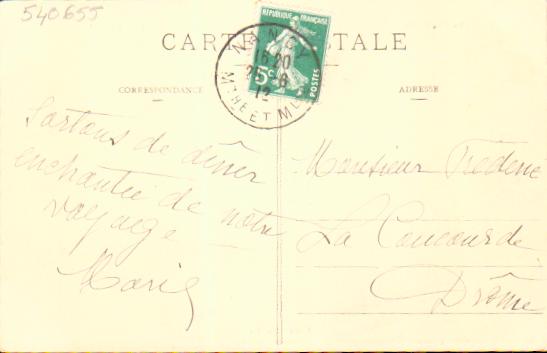 540655
CARTE POSTALE
RÉPUBLIQUE FRANÇAISE
5c
POSTES
NANCY
15 20
MTHE ET M
12
CORRESPONDANCE
ADRESSE
Sortons de dîner
enchantée de notre
voyage
Marie
Monsieur Frédéric
La Coucourde
Drôme